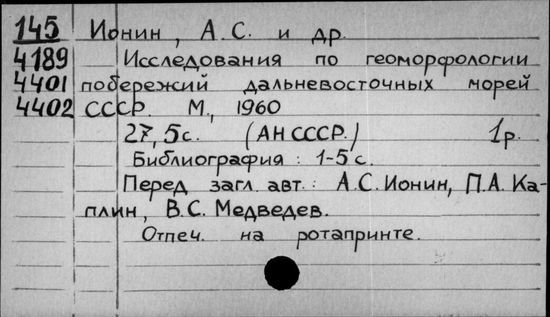 145 Ионин, А.С. и др.
4189 Исследования по геоморфологии
4401 побережий дальневосточных морей
4402 СССР. М., 1960
27, 5с. (АН СССР.) 1р.
Библиография: 1-5 с.
Перед загл. авт.: А.С. Ионин, П.А. Ка-
плин, В.С. Медведев.
Отпеч. на ротапринте.